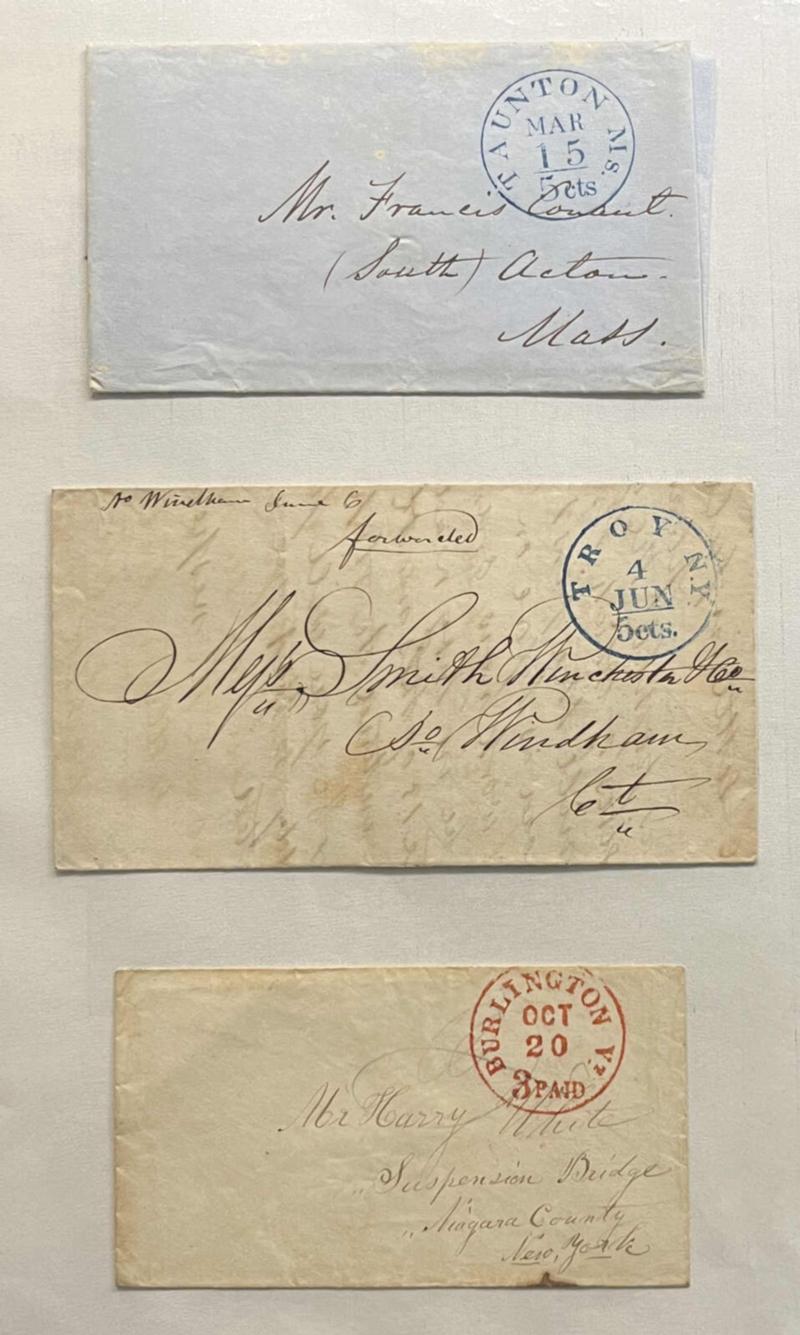 TAUNTON Ms.
MAR
15
5cts
Mr. Francis Conant.
(South) Acton.
Mass.
No Windham June 6
forwarded
TROY N.Y.
4
JUN
5cts.
Mess Smith Winchester & Co
So Windham
Ct
BURLINGTON Vt
OCT
20
3 PAID
Mr Harry White
Suspension Bridge
Niagara County
New, York